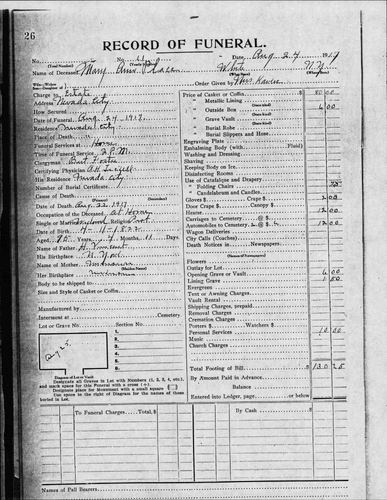 26
RECORD OF FUNERAL.
No. No. Date Aug 24 1917
(Total Number) (Yearly No.)
Name of Deceased Mary Ann White N.Y.
(What Race) (Where Born)
Order Given by Mrs.
Charge to Estate
Address Nevada City
How Secured
Date of Funeral Aug. 24 1917.
Residence Nevada City
Place of Death
Funeral Services at Home
Time of Funeral Service 2 P.M.
Clergyman
Certifying Physician
His Residence Nevada City
Number of Burial Certificate
Cause of Death
Date of Death Aug 22 1917
Occupation of the Deceased At Home
Single or Married
Date of Birth 4-11-1822
Aged Years 4 Months 11 Days
Name of Father H. Vincent
His Birthplace N. York
Name of Mother Unknown
(Maiden Name)
Her Birthplace Unknown
Body to be shipped to
Size and Style of Casket or Coffin
Manufactured by
Interment at Cemetery
Lot or Grave No. Section No.
1.
2.
3.
4.
5.
6.
Diagram of Lot or Vault
Designate all Graves in Lot with Numbers (1, 2, 3, 4, etc.), and mark space for this Funeral with a cross (+)
Designate place for Monument with a small square
Use space in the right of Diagram for the names of those buried in Lot.
Price of Casket or Coffin 80 00
" Metallic Lining
" Outside Box 6 00
" Grave Vault
" Burial Robe
" Burial Slippers and Hose
Engraving Plate
Embalming Body (with Fluid)
Washing and Dressing
Shaving
Keeping Body on Ice
Disinfecting Rooms
Use of Catafalque and Drapery
" Folding Chairs
" Candelabrum and Candles
Gloves $ Crape $ 2 00
Door Crape $ Canopy $
Hearse 12 00
Carriages to Cemetery @ $
Automobiles to Cemetery @ $ 12 00
Wagon Deliveries
City Calls (Coaches)
Death Notices in Newspapers
Flowers
Outlay for Lot
Opening Grave or Vault 6 00
Lining Grave 1 50
Evergreen
Tent or Awning Charges
Vault Rental
Shipping Charges, prepaid
Removal Charges
Cremation Charges
Porters $ Watchers $
Personal Services 10 00
Music
Church Charges
Total Footing of Bill $ 130 25
By Amount Paid in Advance
Balance
Entered into Ledger, page or below
To Funeral Charges Total, $ By Cash $
Names of Pall Bearers